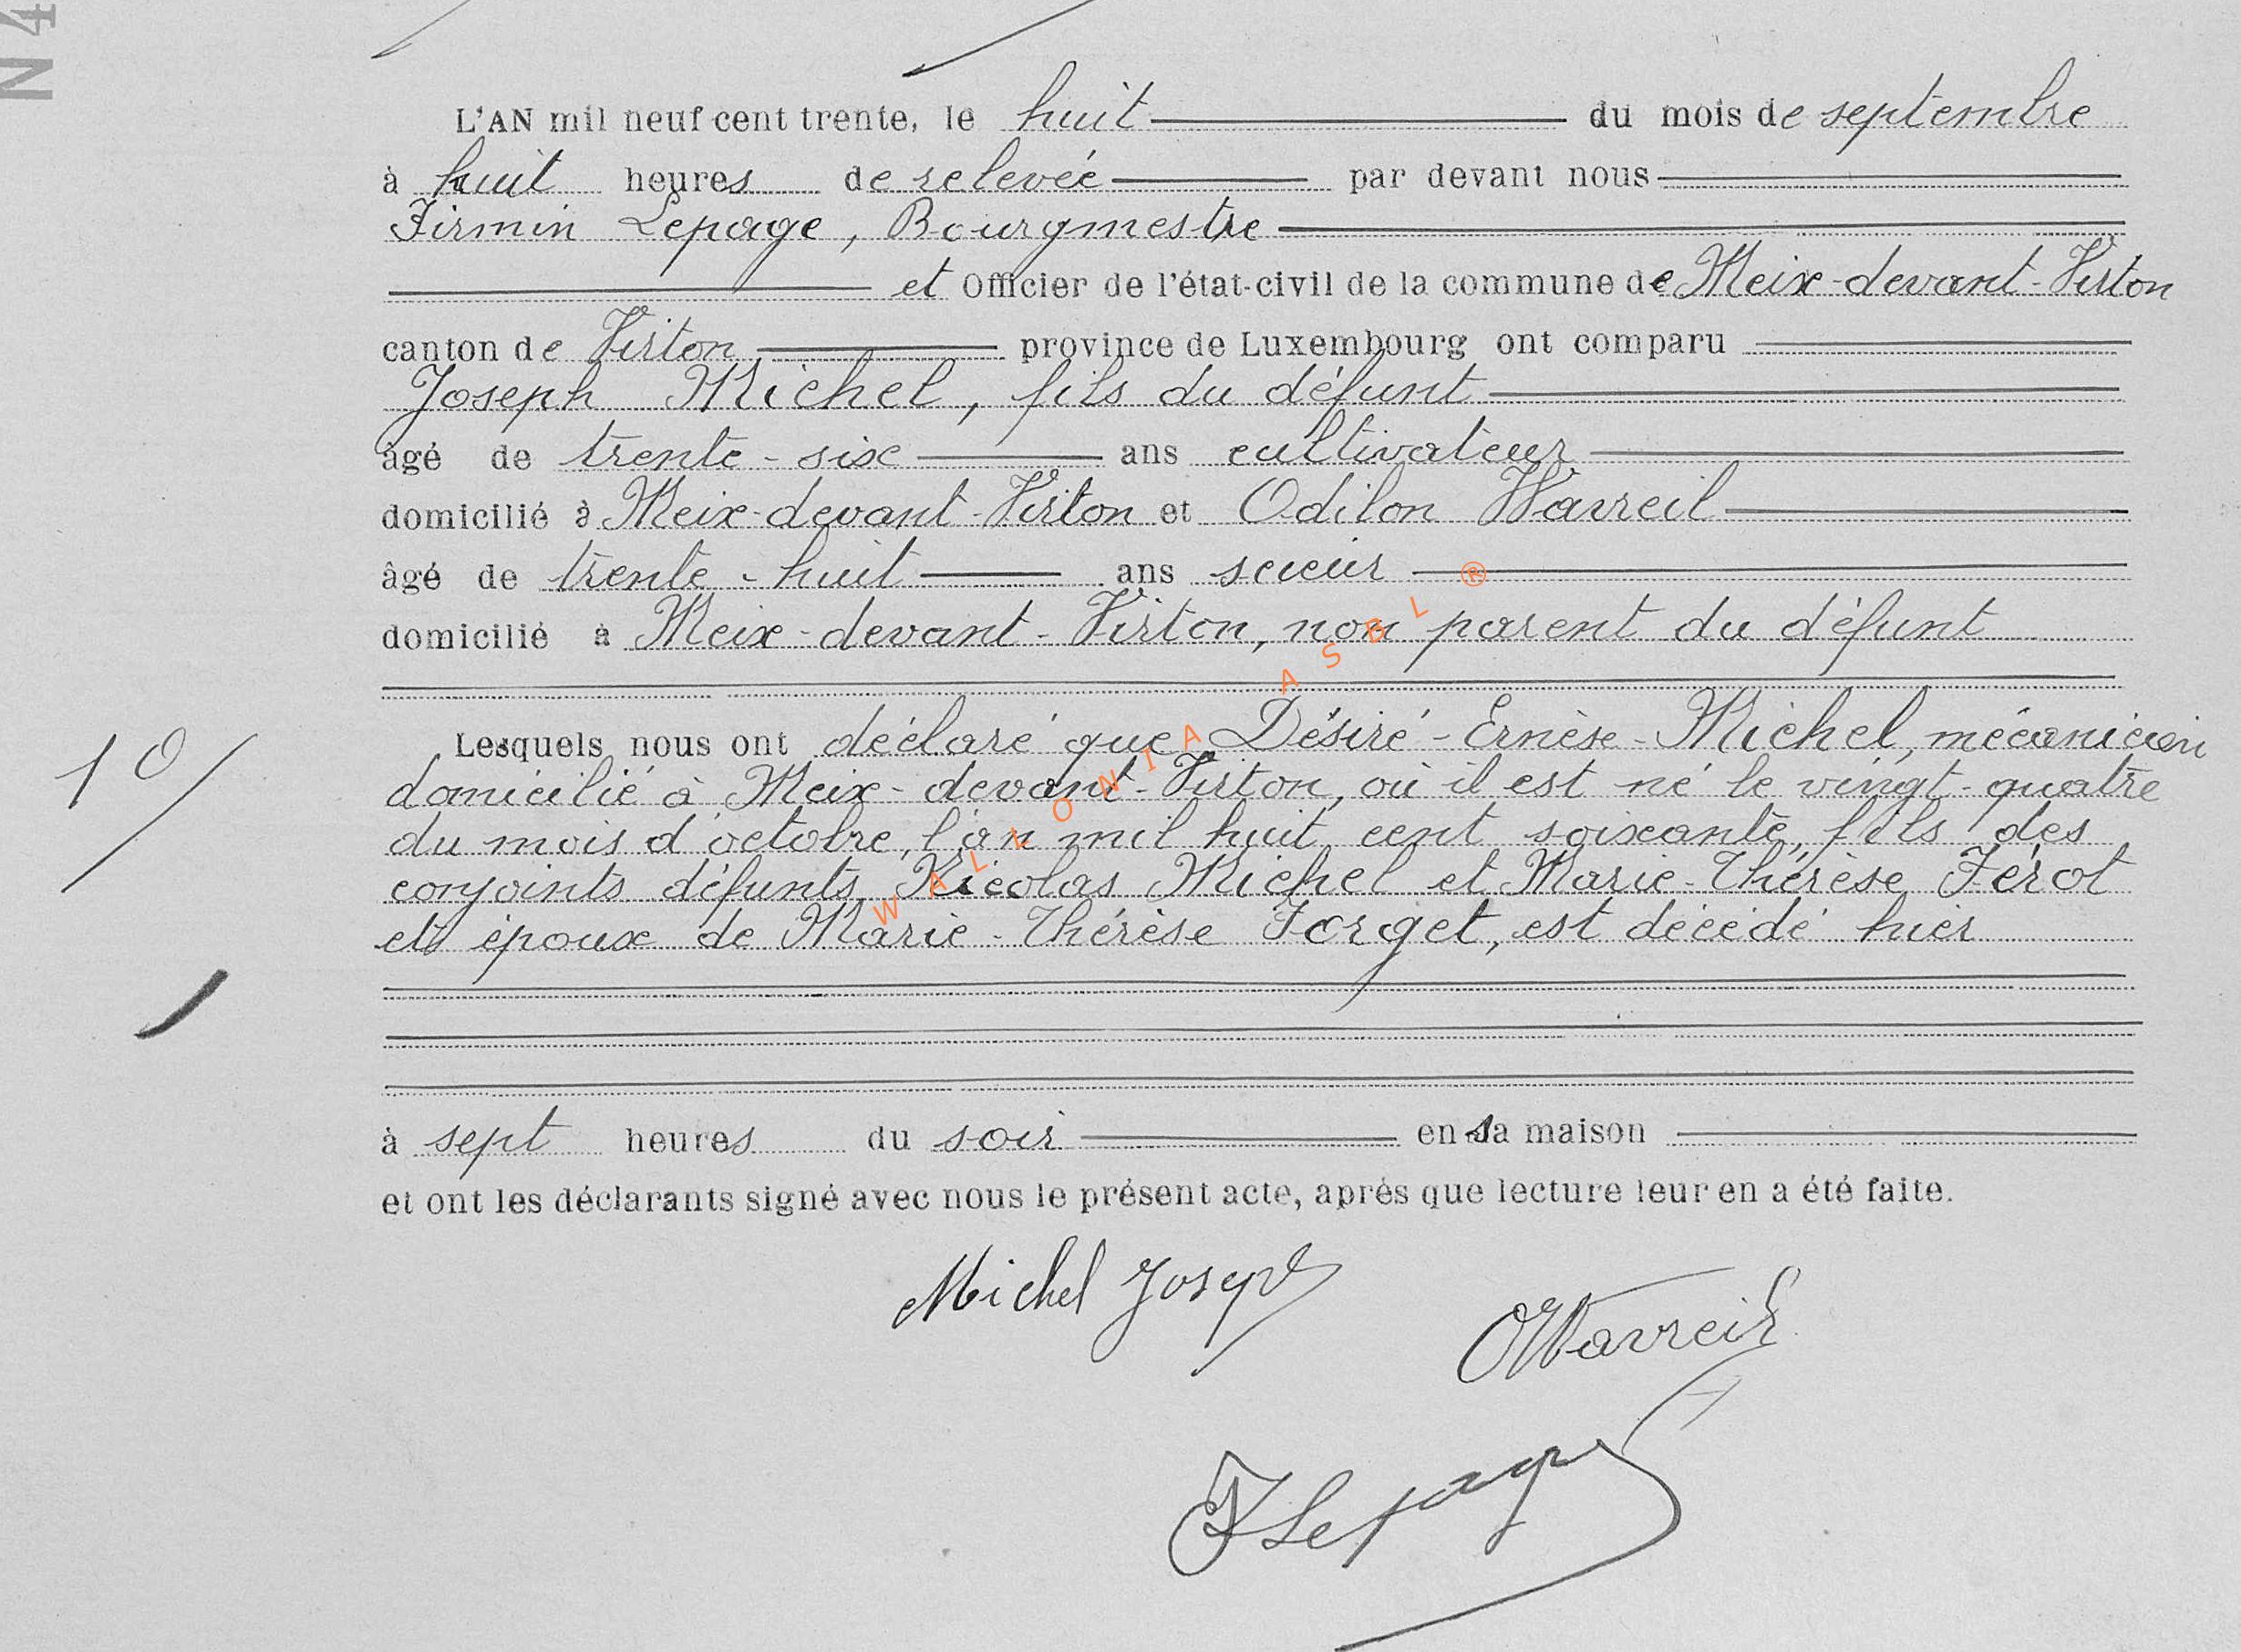 N4
L'AN mil neuf cent trente, le huit du mois de septembre
à huit heures de relevée par devant nous
Firmin Lepage, Bourgmestre
et Officier de l'état-civil de la commune de Meix-devant-Virton
canton de Virton province de Luxembourg ont comparu
Joseph Michel, fils du défunt
âgé de trente-six ans cultivateur
domicilié à Meix-devant-Virton et Odilon Wavreil
âgé de trente-huit ans scieur
domicilié à Meix-devant-Virton, non parent du défunt
Lesquels nous ont déclaré que Désiré-Ernèse-Michel, mécanicien
domicilié à Meix-devant-Virton, où il est né le vingt-quatre
du mois d'octobre, l'an mil huit cent soixante, fils des
conjoints défunts Nicolas Michel et Marie-Thérèse Férot
et époux de Marie-Thérèse Forget, est décédé hier
10/
à sept heures du soir en sa maison
et ont les déclarants signé avec nous le présent acte, après que lecture leur en a été faite.
Michel Joseph
OWavreil
FLepage
WALLONIA ASBL ®